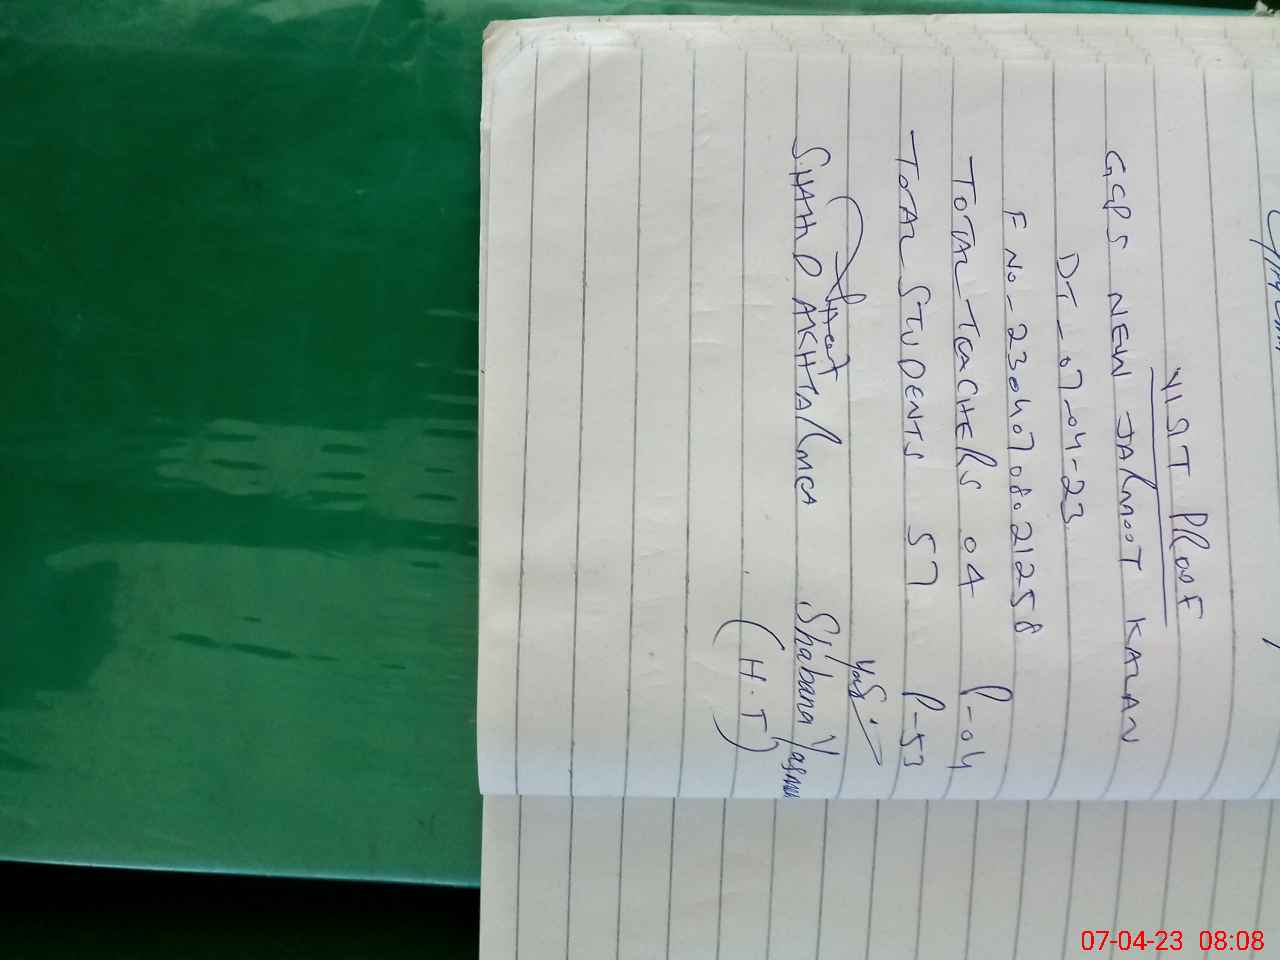 VIST PROOF
GGPS NEW JALMOOT KALAN
DT - 07-04-23
F No - 23040708021258
TOTAL TEACHERS 04 P-04
TOTAL STUDENTS 57 P-53
SHAHID AKHTAR MEA Shabana Yasmin
(H.T)
07-04-23 08:08